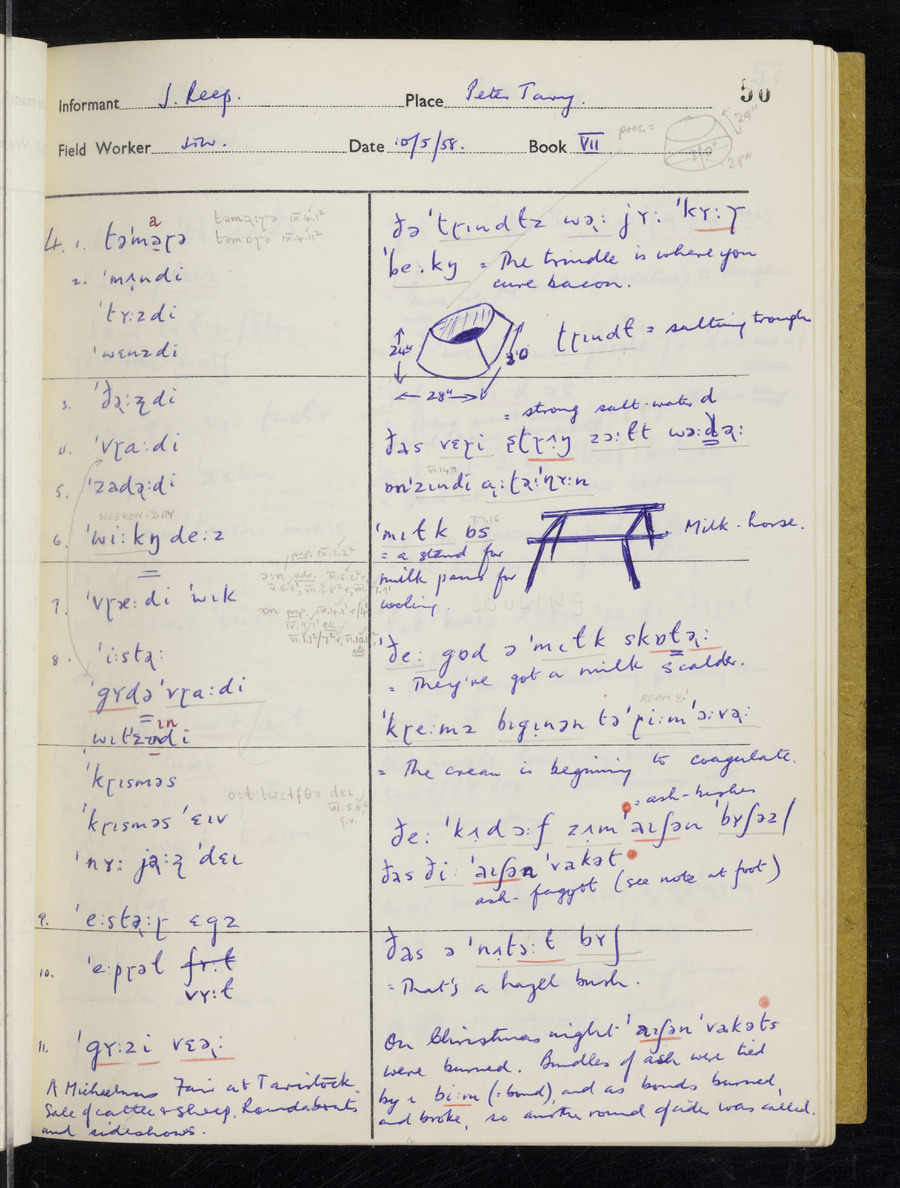 57
50
Informant J. Reep. Place Peter Tavy.
Field Worker Date 10/5/58. Book VII
pres. =
24"
3'0"
28"
4. 1. tə'mąɽə
a
təmą:ɽə IX.4.1²
təmɑɽə
2. 'mʌndi
'tʏ:zdi
'wɛnzdi
3. 'ðə̨:ʐdi
4. 'vɽa:di
5. 'zadə̨:di
WEEKEN-DAY
6. 'wi:kŋ de:z
7. 'vɽæ:di 'wɪk
8. 'i:stə̨:
'gʏdə 'vɽa:di
wɪtzʊdi
ɪn
'kɽɪsməs
'kɽɪsməs 'ɛɪv
'nʏ: jə̨:ʐ 'dɛɪ
VII.5.8,
q.v.
9. 'e:stə̨:ɽ ɛgz
10. 'e:pɽəł fʏ:ł
vʏ:ł
11. 'gʏ:zi vɛə̨:
A Michaelmas Fair at Tavistock.
Sale of cattle & sheep, Roundabouts
and sideshows.
ðə 'tɽɪndłz wə̨: jʏ: 'kʏ:ɽ
'be:kŋ = The trindle is where you
cure bacon.
24"
30
28"
tɽɪndł = salting trough
= strong salt-water
ðas vɛɽi ʂtɽʌŋ zɔ:łt wɔ:də̨:
d
VI.14.7
ɒn'zɪndi ą:tə̨:'nʏ:n
'mɪłk ɒs
V.7.16
= a stand for
milk pans for
cooling.
COOLING
Milk-horse.
'ðe: gɒd ə 'mɪłk skɒłə̨:
= They've got a milk scalder.
REAM v.
'kɽe:mz bɪgɪnən tə 'ɽi:m 'ɔ:və̨:
= The cream is beginning to coagulate.
= ash-bushes
ðe: 'kʌd ɔ:f zʌm 'aɪʃən 'bʏʃəz /
ðas ði: 'aɪʃən 'vakət
ash-faggot (see note at foot)
ðas ə 'nʌtɔ:ł bʏʃ
= That's a hazel bush.
On Christmas night 'aɪʃən 'vakəts
were burned. Bundles of ash were tied
by a bi:n (= bond), and as bonds burned
and broke, so another round of cider was called.